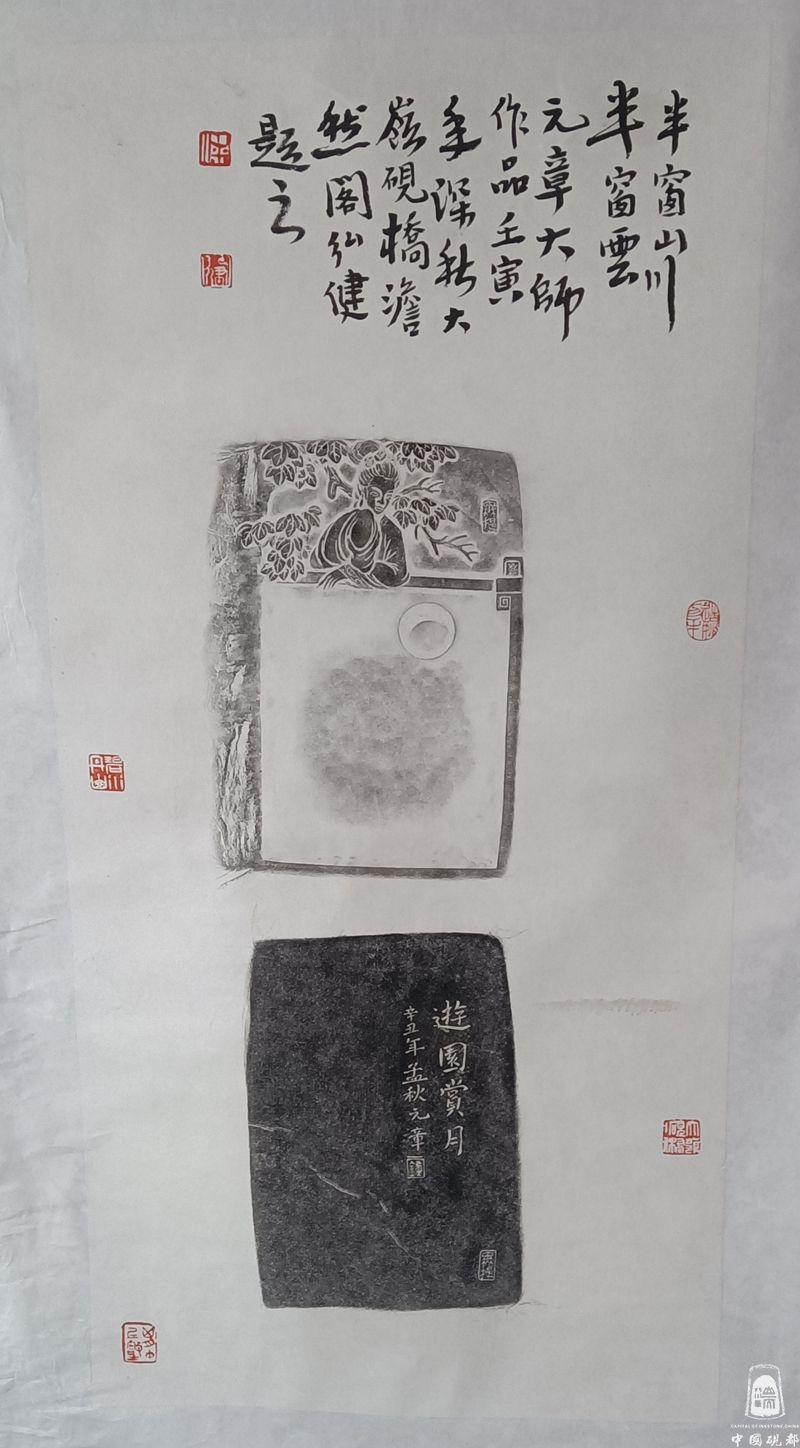 半窗山川
半窗雲
元章大師
作品壬寅
年深秋大
嶺硯橋澹
然閣弘健
題之
遊園賞月
辛丑年孟秋元章
CAPITAL OF INKSTONE, CHINA
中國硯都